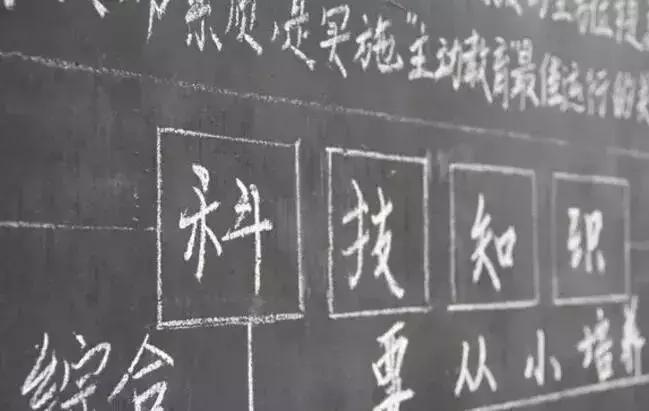 素质,是实施"主动教育"最佳运行的
科技知识
综合 要从小培养